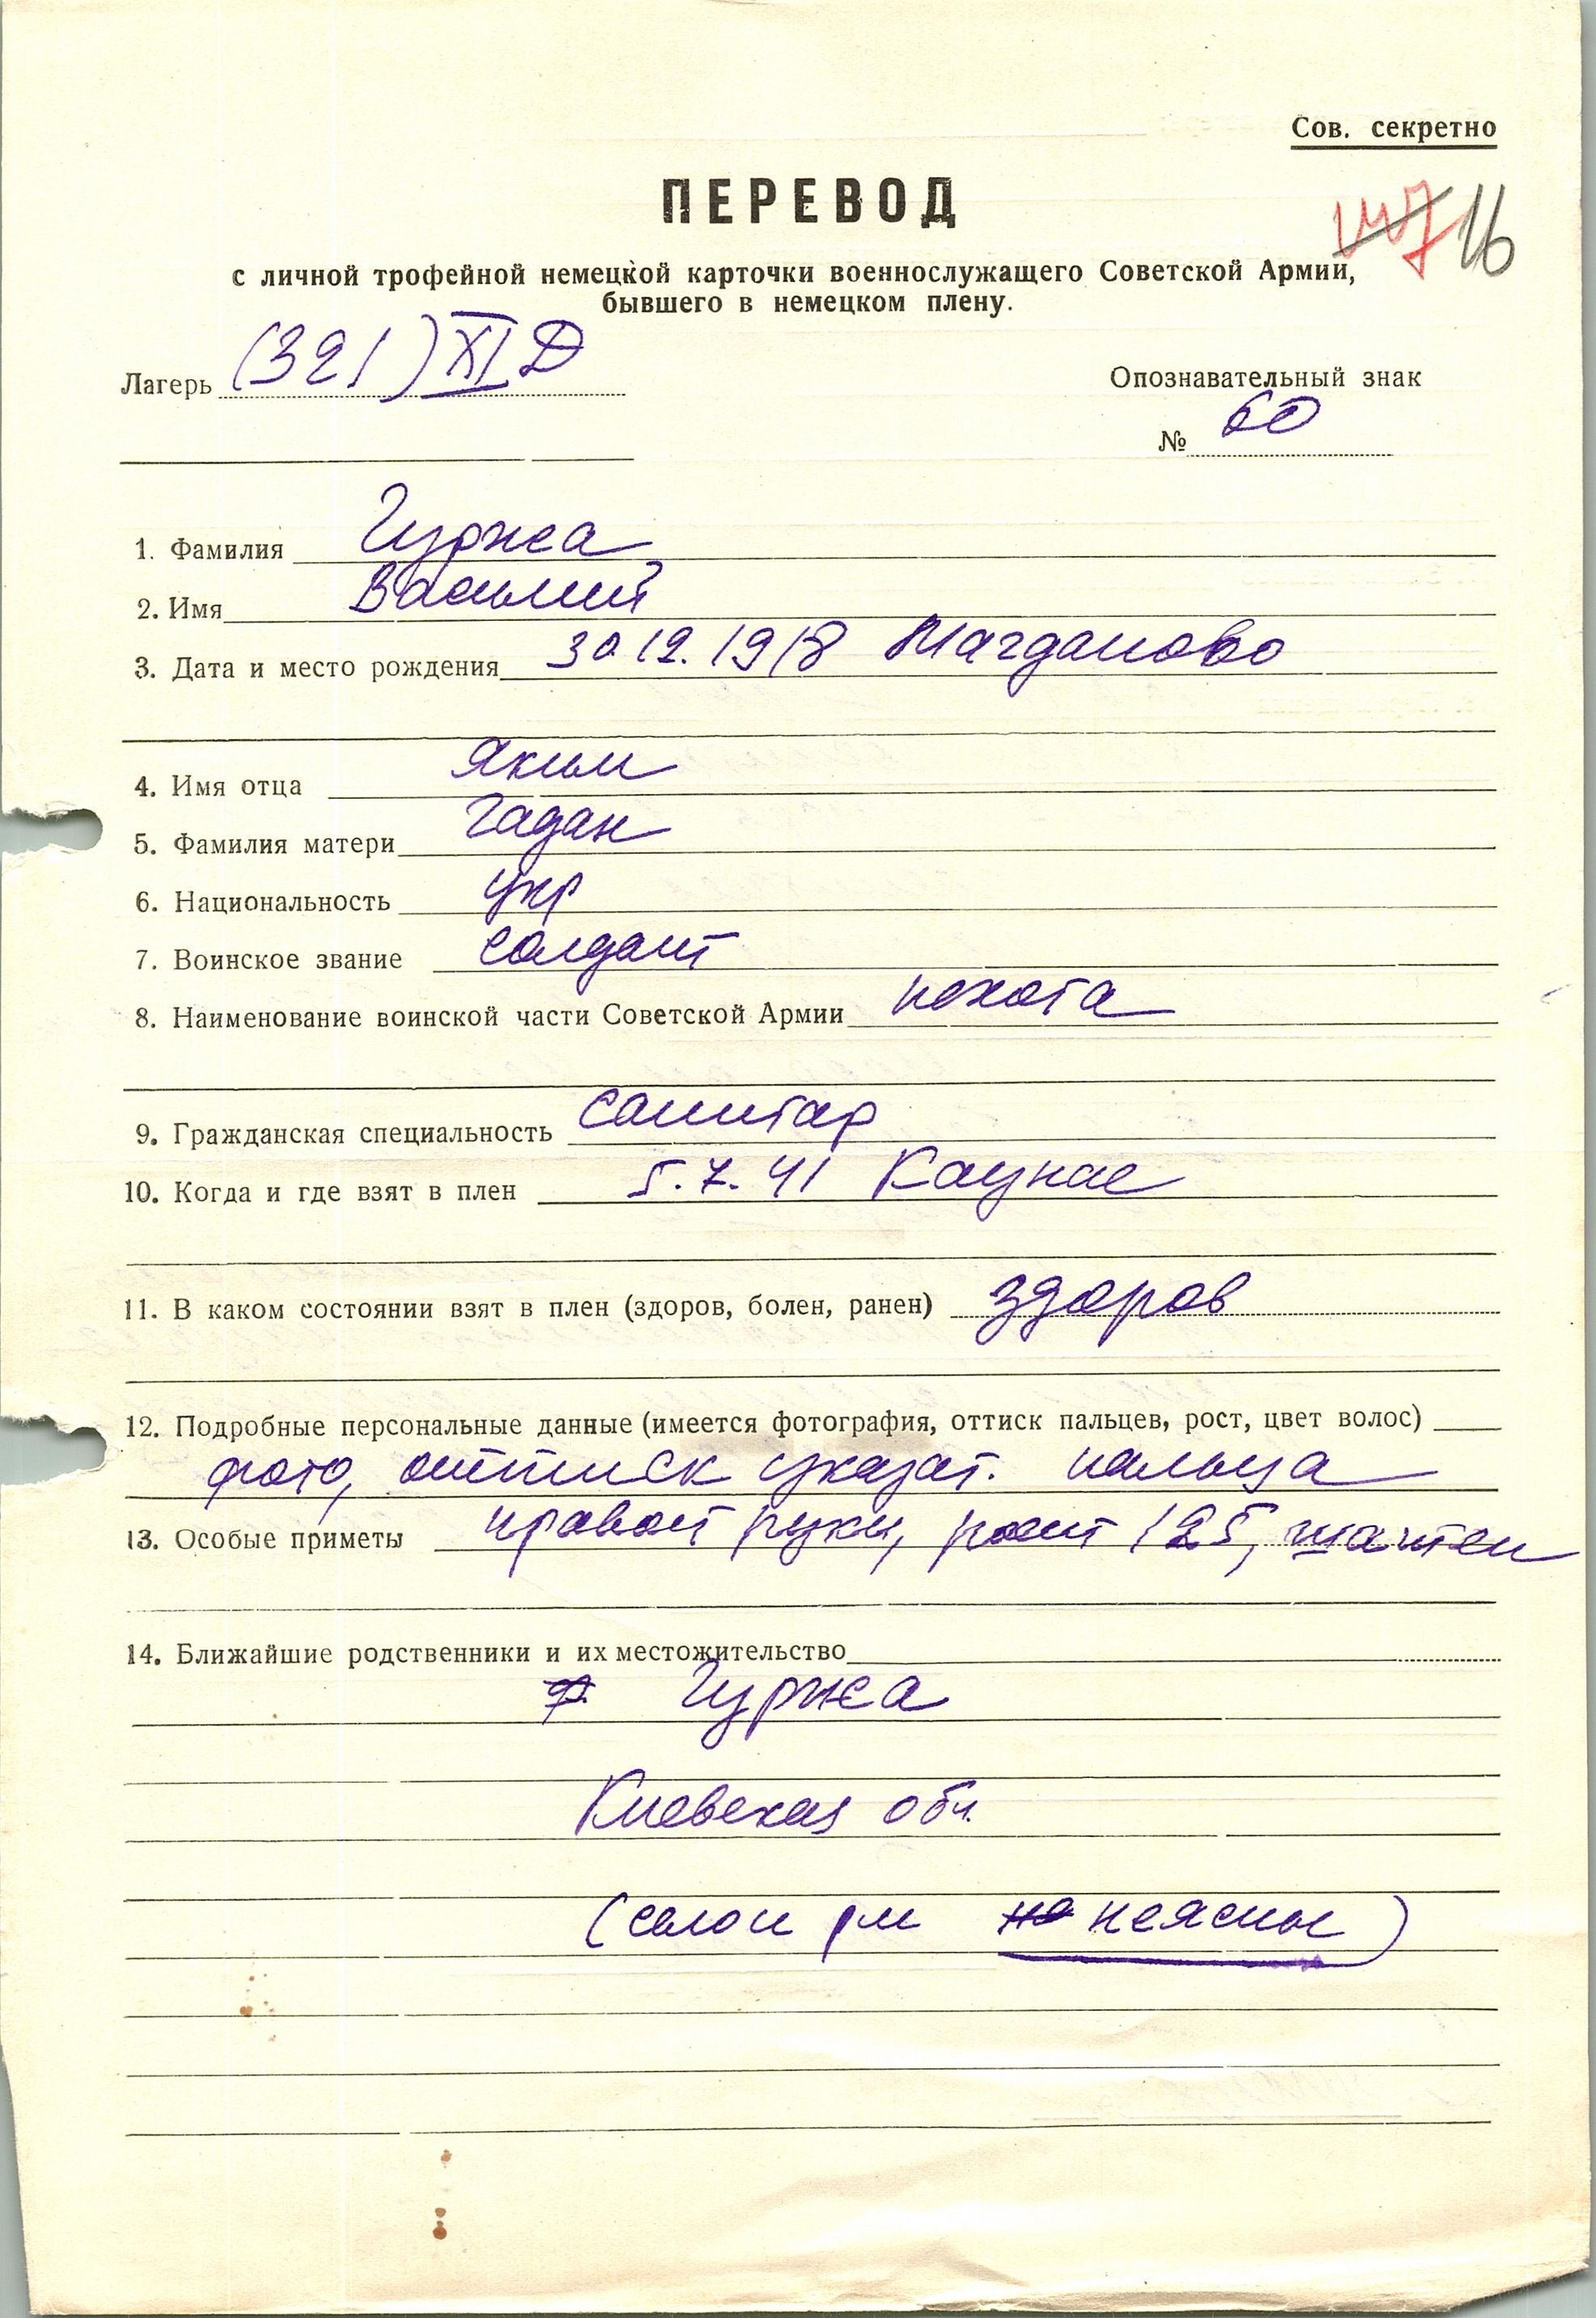 Сов. секретно
ПЕРЕВОД
16
с личной трофейной немецкой карточки военнослужащего Советской Армии,
бывшего в немецком плену.
Лагерь (321) XI D
Опознавательный знак
№ 60
1. Фамилия Гуржа
2. Имя Василий
3. Дата и место рождения 30.12.1918 Магданово
4. Имя отца Яким
5. Фамилия матери Гадан
6. Национальность укр
7. Воинское звание солдат
8. Наименование воинской части Советской Армии пехота
9. Гражданская специальность санитар
10. Когда и где взят в плен 5.7.41 Каунас
11. В каком состоянии взят в плен (здоров, болен, ранен) здоров
12. Подробные персональные данные (имеется фотография, оттиск пальцев, рост, цвет волос)
фото, оттиск указат. пальца
13. Особые приметы правой руки, рост 185, шатен
14. Ближайшие родственники и их местожительство
Гуржа
Киевская обл.
(село и р-н неясны)